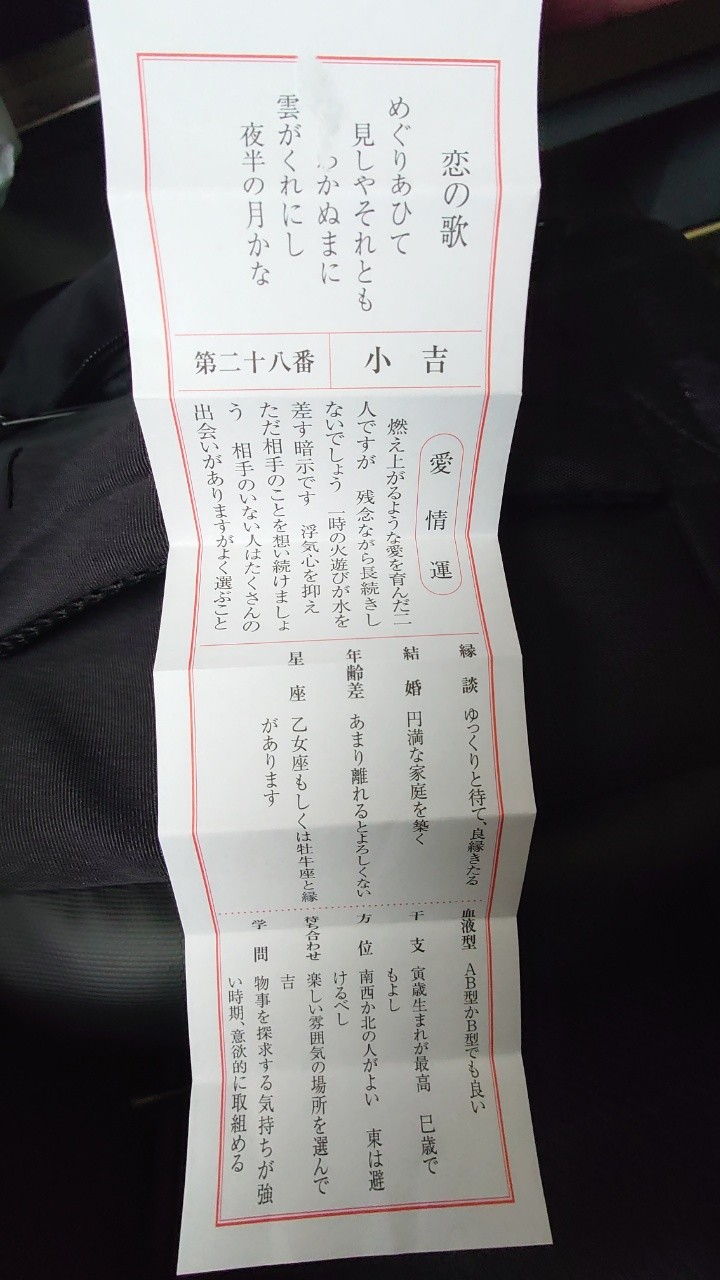 恋の歌
めぐりあひて
見しやそれとも
かぬまに
雲がくれにし
夜半の月かな
小吉
第二十八番
愛情運
燃え上がるような愛を育んだ二
人ですが 残念ながら長続きし
ないでしょう 一時の火遊びが水を
差す暗示です 浮気心を抑え
ただ相手のことを想い続けましょ
う 相手のいない人はたくさんの
出会いがありますがよく選ぶこと
縁談 ゆっくりと待て、良縁きたる
結婚 円満な家庭を築く
年齢差 あまり離れるとよろしくない
星座 乙女座もしくは牡牛座と縁
があります
血液型 AB型かB型でも良い
干支 寅歳生まれが最高 巳歳で
もよし
方位 南西か北の人がよい 東は避
けるべし
待ち合わせ 楽しい雰囲気の場所を選んで
吉
学問 物事を探求する気持ちが強
い時期、意欲的に取組める